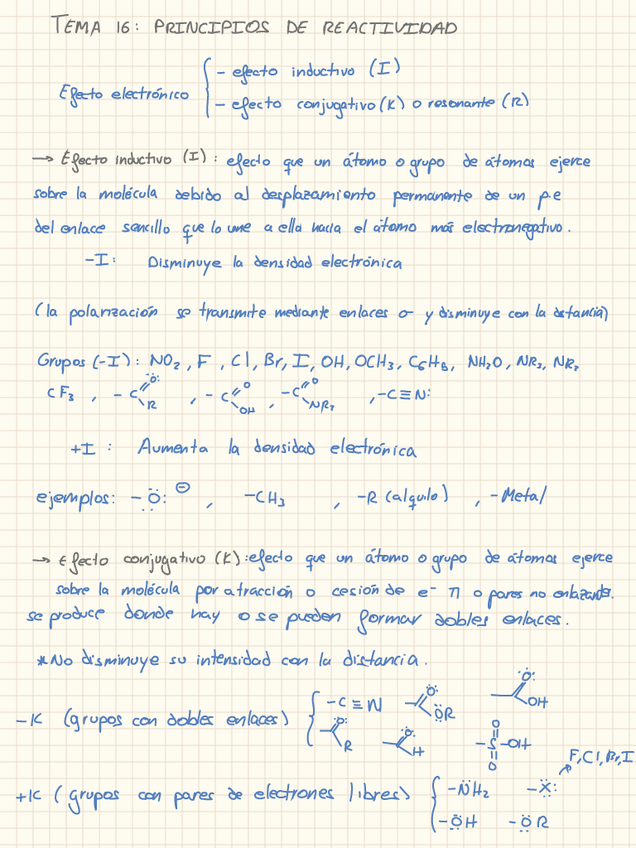 TEMA 16: PRINCIPIOS DE REACTIVIDAD
Efecto electrónico
- efecto inductivo (I)
- efecto conjugativo (K) o resonante (R)
→ Efecto inductivo (I): efecto que un átomo o grupo de átomos ejerce
sobre la molécula debido al desplazamiento permanente de un p.e
del enlace sencillo que lo une a ella hacia el átomo más electronegativo.
-I: Disminuye la densidad electrónica
(la polarización se transmite mediante enlaces σ y disminuye con la distancia)
Grupos (-I): NO₂, F, Cl, Br, I, OH, OCH₃, C₆H₈, NH₂O, NR₃, NR₂
CF₃, -C Ö: R, -C O OH, -C O NR₂, -C≡N:
+I: Aumenta la densidad electrónica
ejemplos: -Ö:⊖, -CH₃, -R (alquilo), -Metal
→ Efecto conjugativo (K): efecto que un átomo o grupo de átomos ejerce
sobre la molécula por atracción o cesión de e⁻ π o pares no enlazados.
se produce donde hay o se pueden formar dobles enlaces.
*No disminuye su intensidad con la distancia.
-K (grupos con dobles enlaces)
-C≡N Ö: ÖR Ö: OH
Ö: R Ö: H O -S-OH O
F, Cl, Br, I
+K (grupos con pares de electrones libres)
-N̈H₂ -Ẍ:
-ÖH -ÖR